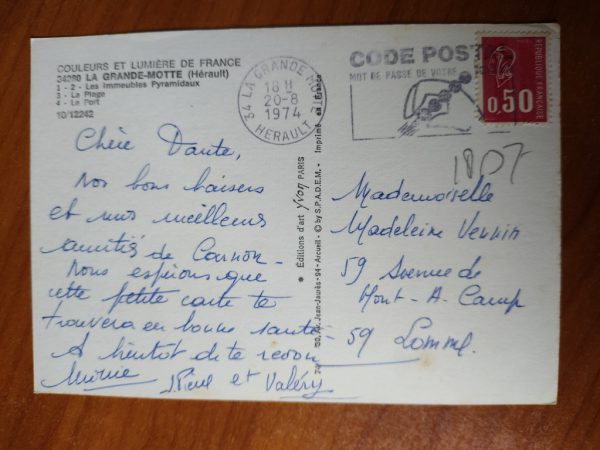 COULEURS ET LUMIÈRE DE FRANCE
34280 LA GRANDE-MOTTE (Hérault)
1 - 2 - Les Immeubles Pyramidaux
3 - La Plage
4 - Le Port
10/12242
34 LA GRANDE MOTTE
18 H
20-8
1974
HERAULT
CODE POST
MOT DE PASSE DE VOTRE
REPUBLIQUE FRANÇAISE
0,50
Chère Dante,
Nos bons baisers
et nos meilleures
amitiés de Carnon -
Nous espérons que
cette petite carte te
trouvera en bonne santé -
A bientôt de te revoir
et Valéry
Éditions d'art Yvon PARIS
Jean-Jaurès - 94 - Arcueil - © by S.P.A.D.E.M. - Imprimé en France
Mademoiselle
Madeleine Vennin
59 Avenue de
Mont-A-Camp
59 Lomme.